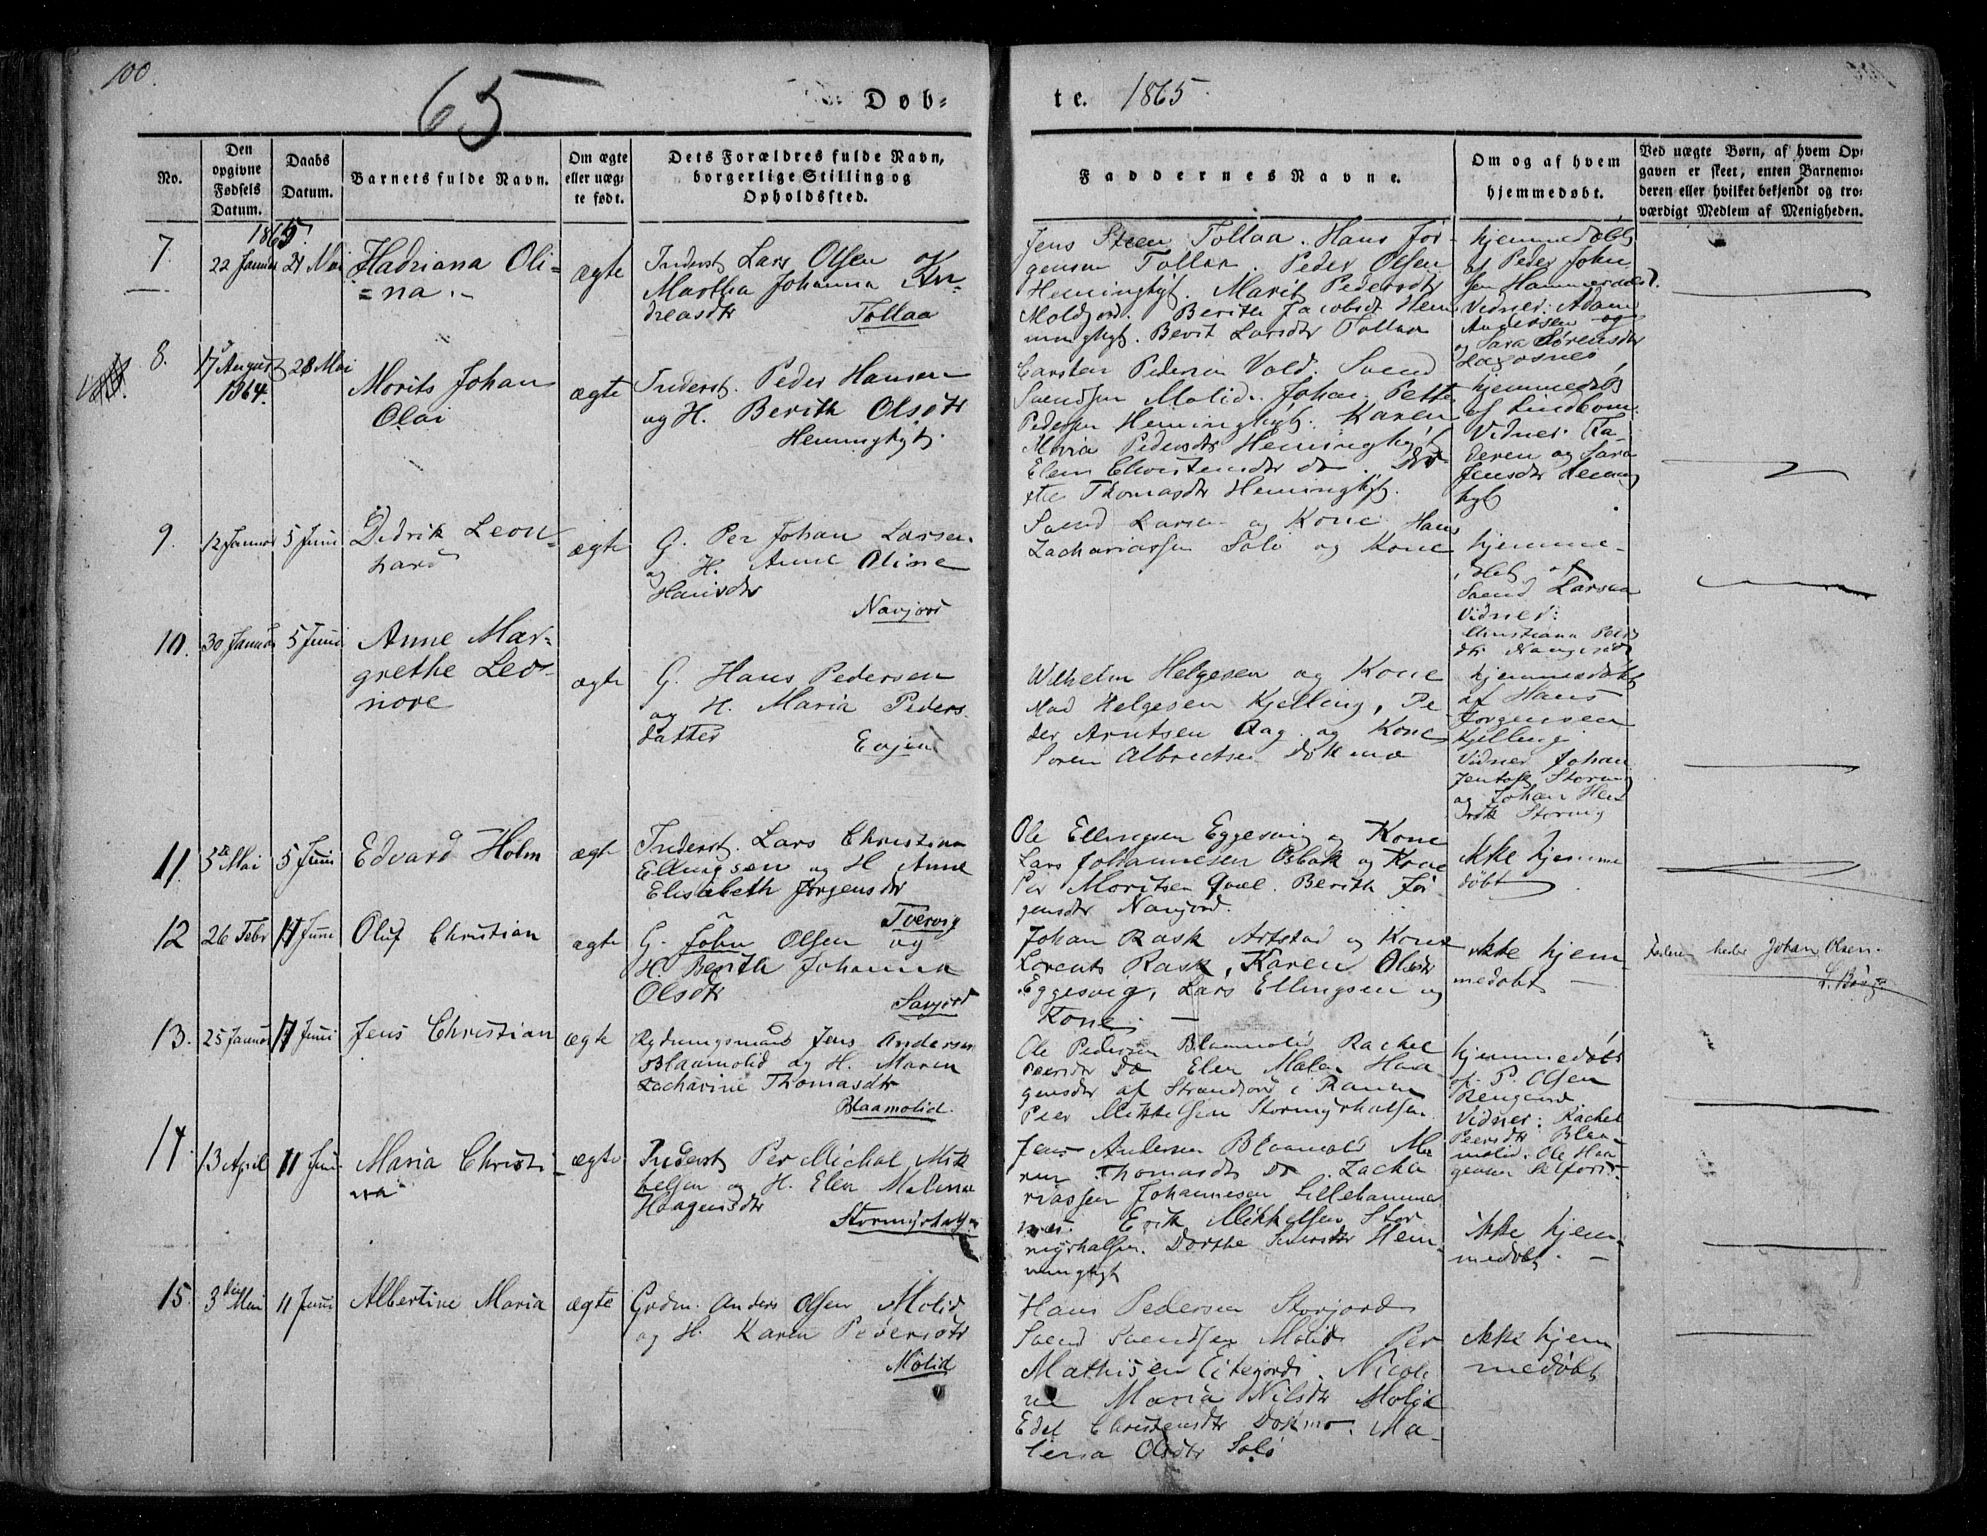 100.
65
Døb=
te. 1865.
No.
Den opgivne Fødsels Datum.
Daabs Datum.
Barnets fulde Navn.
Om ægte eller uæg- te født.
Dets Forældres fulde Navn, borgerlige Stilling og Opholdssted.
Faddernes Navne.
Om og af hvem hjemmedøbt.
Ved uægte Børn, af hvem Op- gaven er skeet, enten Barnemo- deren eller hvilket bekjendt og tro- værdigt Medlem af Menigheden.
1865.
7.
22 Januar
21 Mai
Hadriana Oli-
=na.
ægte
Inderst Lars Olsen og
Martha Johanna An-
dreasdtr
Tollaa
Jens Steen Tollaa. Hans Jør-
gensen Tollaa. Peder Olsen
Hemingtyt. Marit Pedersdtr
Moldjord. Berith Jacobsdtr Hem
mingtyt. Berit Larsdtr Tollaa
hjemmedøbt
af Peder John
sen Hammernæs.
Vidner: Adam
Andersen og
og Sara Sørensdtr
8.
17 August
1864.
28 Mai
Morits Johan
Olai
ægte
Inderst. Peder Hansen
og H. Berith Olsdtr
Hemmingtyt.
Carsten Pedersen Vold. Svend
Svendsen Molid. Johan Petter
Pedersen Hemingtyt. Karen
Maria Pedersdtr Hemingtyt
Elen Christensdtr do. Do-
the Thomasdtr Hemingtyt.
hjemmedøbt
af Lindbom.
Vidner: Fa-
deren og Sara
Jensdtr Heming
tyt
9.
12 Januar
5 Juni
Didrik Leon-
hard
ægte
G. Per Johan Larsen
og H. Anne Oline
Hansdtr
Navjord
Svend Larsen og Kone Hans
Zachariassen Solø og Kone
hjemme-
døbt af
Svend Larsen
Vidner:
Christiana Peders
dtr
10.
30 Januar
5 Juni
Anne Mar-
grethe Leo-
nore
ægte
G. Hans Pedersen
og H. Maria Peders
datter
Evjen
Wilhelm Helgesen og Kone
Mad Helgesen Kjelling, Pe-
der Arntsen Aag og Kone
Søren Albrectsen Dokmo
hjemmedøbt
af Hans
Jørgensen
Kjelling
Vidner Johan
Jentoft Storvig
og Johan Hen
drik Storvig
11.
5te Mai
5 Juni
Edvard Holm
ægte
Inderst. Lars Christian
Ellingsen og H. Anne
Elisabeth Jørgensdtr
Tvervig
Ole Ellingsen Eggesvig og Kone
Lars Johannesen Osbak og Kone
Per Moritsen Hval. Berith Jør-
gensdtr Navjord.
ikke hjemme
døbt
12
26 Febr
11 Juni
Oluf Christian
ægte
G. John Olsen og
H. Berith Johanna
Olsdtr
Savjord
Johan Rask Arstad og Kone
Lorents Rask, Karen Olsdtr
Eggesvig, Lars Ellingsen og
Kone.
ikke hjem-
medøbt
Faderen heder Johan Olsen.
13.
25 Januar
11 Juni
Jens Christian
ægte
Rydningsmand Jens Andersen
Blaamolid og H. Maren
Zacharine Thomasdtr
Blaamolid.
Ole Pedersen Blaamolid Rachel
Peersdtr Do Elen Malen Haa
gensdtr af Strandjord i Ranen
Peer Mikkelsen Stormyrhalsen.
hjemmedøbt
af P. Olsen
Rengaard
Vidner: Rachel
Peersdtr Blaa-
molid. Ole Haa
gensen
14.
13 April
11 Juni
Maria Christi-
na
ægte
Inderst Per Michal Mik
kelsen og H. Elen Malena
Haagensdtr
Stormyrhalsen
Jens Andersen Blaamolid Ma
ren Thomasdtr Do. Zacha
riassen Johannesen Lillehammer
næs. Erik Mikkelsen Stor
myrhalsen. Dorthe Iversdtr Hem-
mingtyt
ikke hjem-
medøbt.
15.
3die Mai
11 Juni
Albertine Maria
ægte
Grdm. Anders Olsen Molid
og H. Karen Pedersdtr
Molid
Hans Pedersen Storjord
Svend Svendsen Molid Per
Mathisen Eitegjord. Nicoli
ne Maria Nilsdtr Molid
Edel Christensdtr Dokmo. Ma-
lena Olsdtr Solø
ikke hjem
medøbt